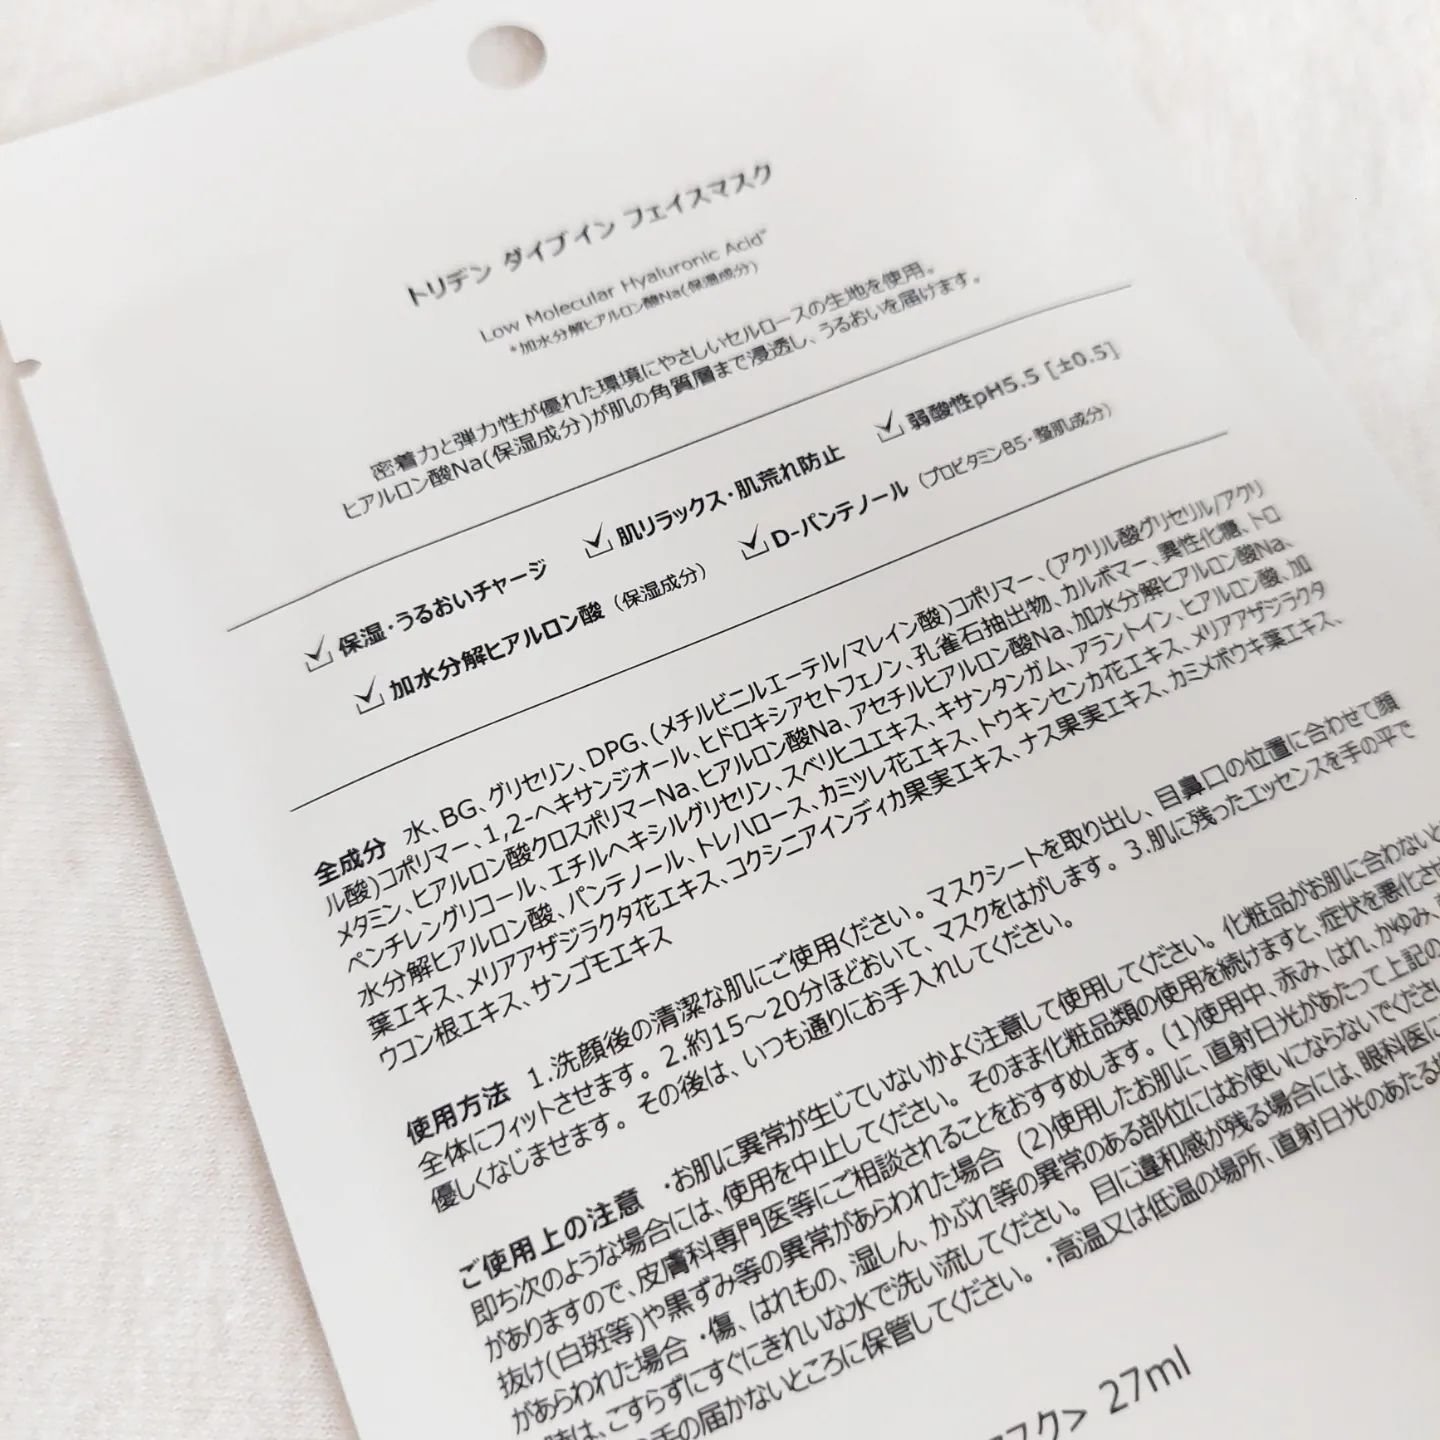 トリデン ダイブイン フェイスマスク
Low Molecular Hyaluronic Acid*
*加水分解ヒアルロン酸Na(保湿成分)
密着力と弾力性が優れた環境にやさしいセルロースの生地を使用。
ヒアルロン酸Na(保湿成分)が肌の角質層まで浸透し、うるおいを届けます。
保湿・うるおいチャージ 肌リラックス・肌荒れ防止 弱酸性pH5.5 [±0.5]
加水分解ヒアルロン酸 (保湿成分) D-パンテノール (プロビタミンB5・整肌成分)
全成分 水、BG、グリセリン、DPG、(メチルビニルエーテル/マレイン酸)コポリマー、(アクリル酸グリセリル/アクリ
ル酸)コポリマー、1,2-ヘキサンジオール、ヒドロキシアセトフェノン、孔雀石抽出物、カルボマー、異性化糖、トロ
メタミン、ヒアルロン酸クロスポリマーNa、ヒアルロン酸Na、アセチルヒアルロン酸Na、加水分解ヒアルロン酸Na、
ペンチレングリコール、エチルヘキシルグリセリン、スベリヒユエキス、キサンタンガム、アラントイン、ヒアルロン酸、加
水分解ヒアルロン酸、パンテノール、トレハロース、カミツレ花エキス、トウキンセンカ花エキス、メリアアザジラクタ
葉エキス、メリアアザジラクタ花エキス、コクシニアインディカ果実エキス、ナス果実エキス、カミメボウキ葉エキス、
ウコン根エキス、サンゴモエキス
使用方法 1.洗顔後の清潔な肌にご使用ください。マスクシートを取り出し、目鼻口の位置に合わせて顔
全体にフィットさせます。2.約15～20分ほどおいて、マスクをはがします。3.肌に残ったエッセンスを手の平で
優しくなじませます。その後は、いつも通りにお手入れしてください。
ご使用上の注意 ・お肌に異常が生じていないかよく注意して使用してください。化粧品がお肌に合わないと
即ち次のような場合には、使用を中止してください。そのまま化粧品類の使用を続けますと、症状を悪化させ
がありますので、皮膚科専門医等にご相談されることをおすすめします。(1)使用中、赤み、はれ、かゆみ、
抜け(白斑等)や黒ずみ等の異常があらわれた場合 (2)使用したお肌に、直射日光があたって上記の
があらわれた場合 ・傷、はれもの、湿しん、かぶれ等の異常のある部位にはお使いにならないでくださ
は、こすらずにすぐにきれいな水で洗い流してください。目に違和感が残る場合には、眼科医に
手の届かないところに保管してください。・高温又は低温の場所、直射日光のあたる
スク> 27ml